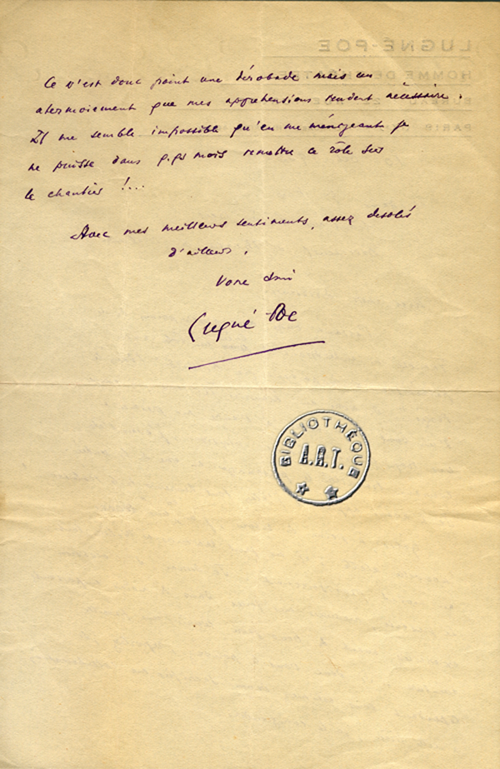 Ce n'est donc point une dérobade mais un
atermoiement que mes appréhensions rendent nécessaire.
Il me semble impossible qu'en me ménageant je
ne puisse dans qqs mois remettre ce rôle sur
le chantier !...
Avec mes meilleurs sentiments, assez désolés
d'ailleurs.
Votre ami
Lugné Poe
BIBLIOTHÈQUE
A.R.T.
LUGNÉ-POE
HOMME DE
PARIS